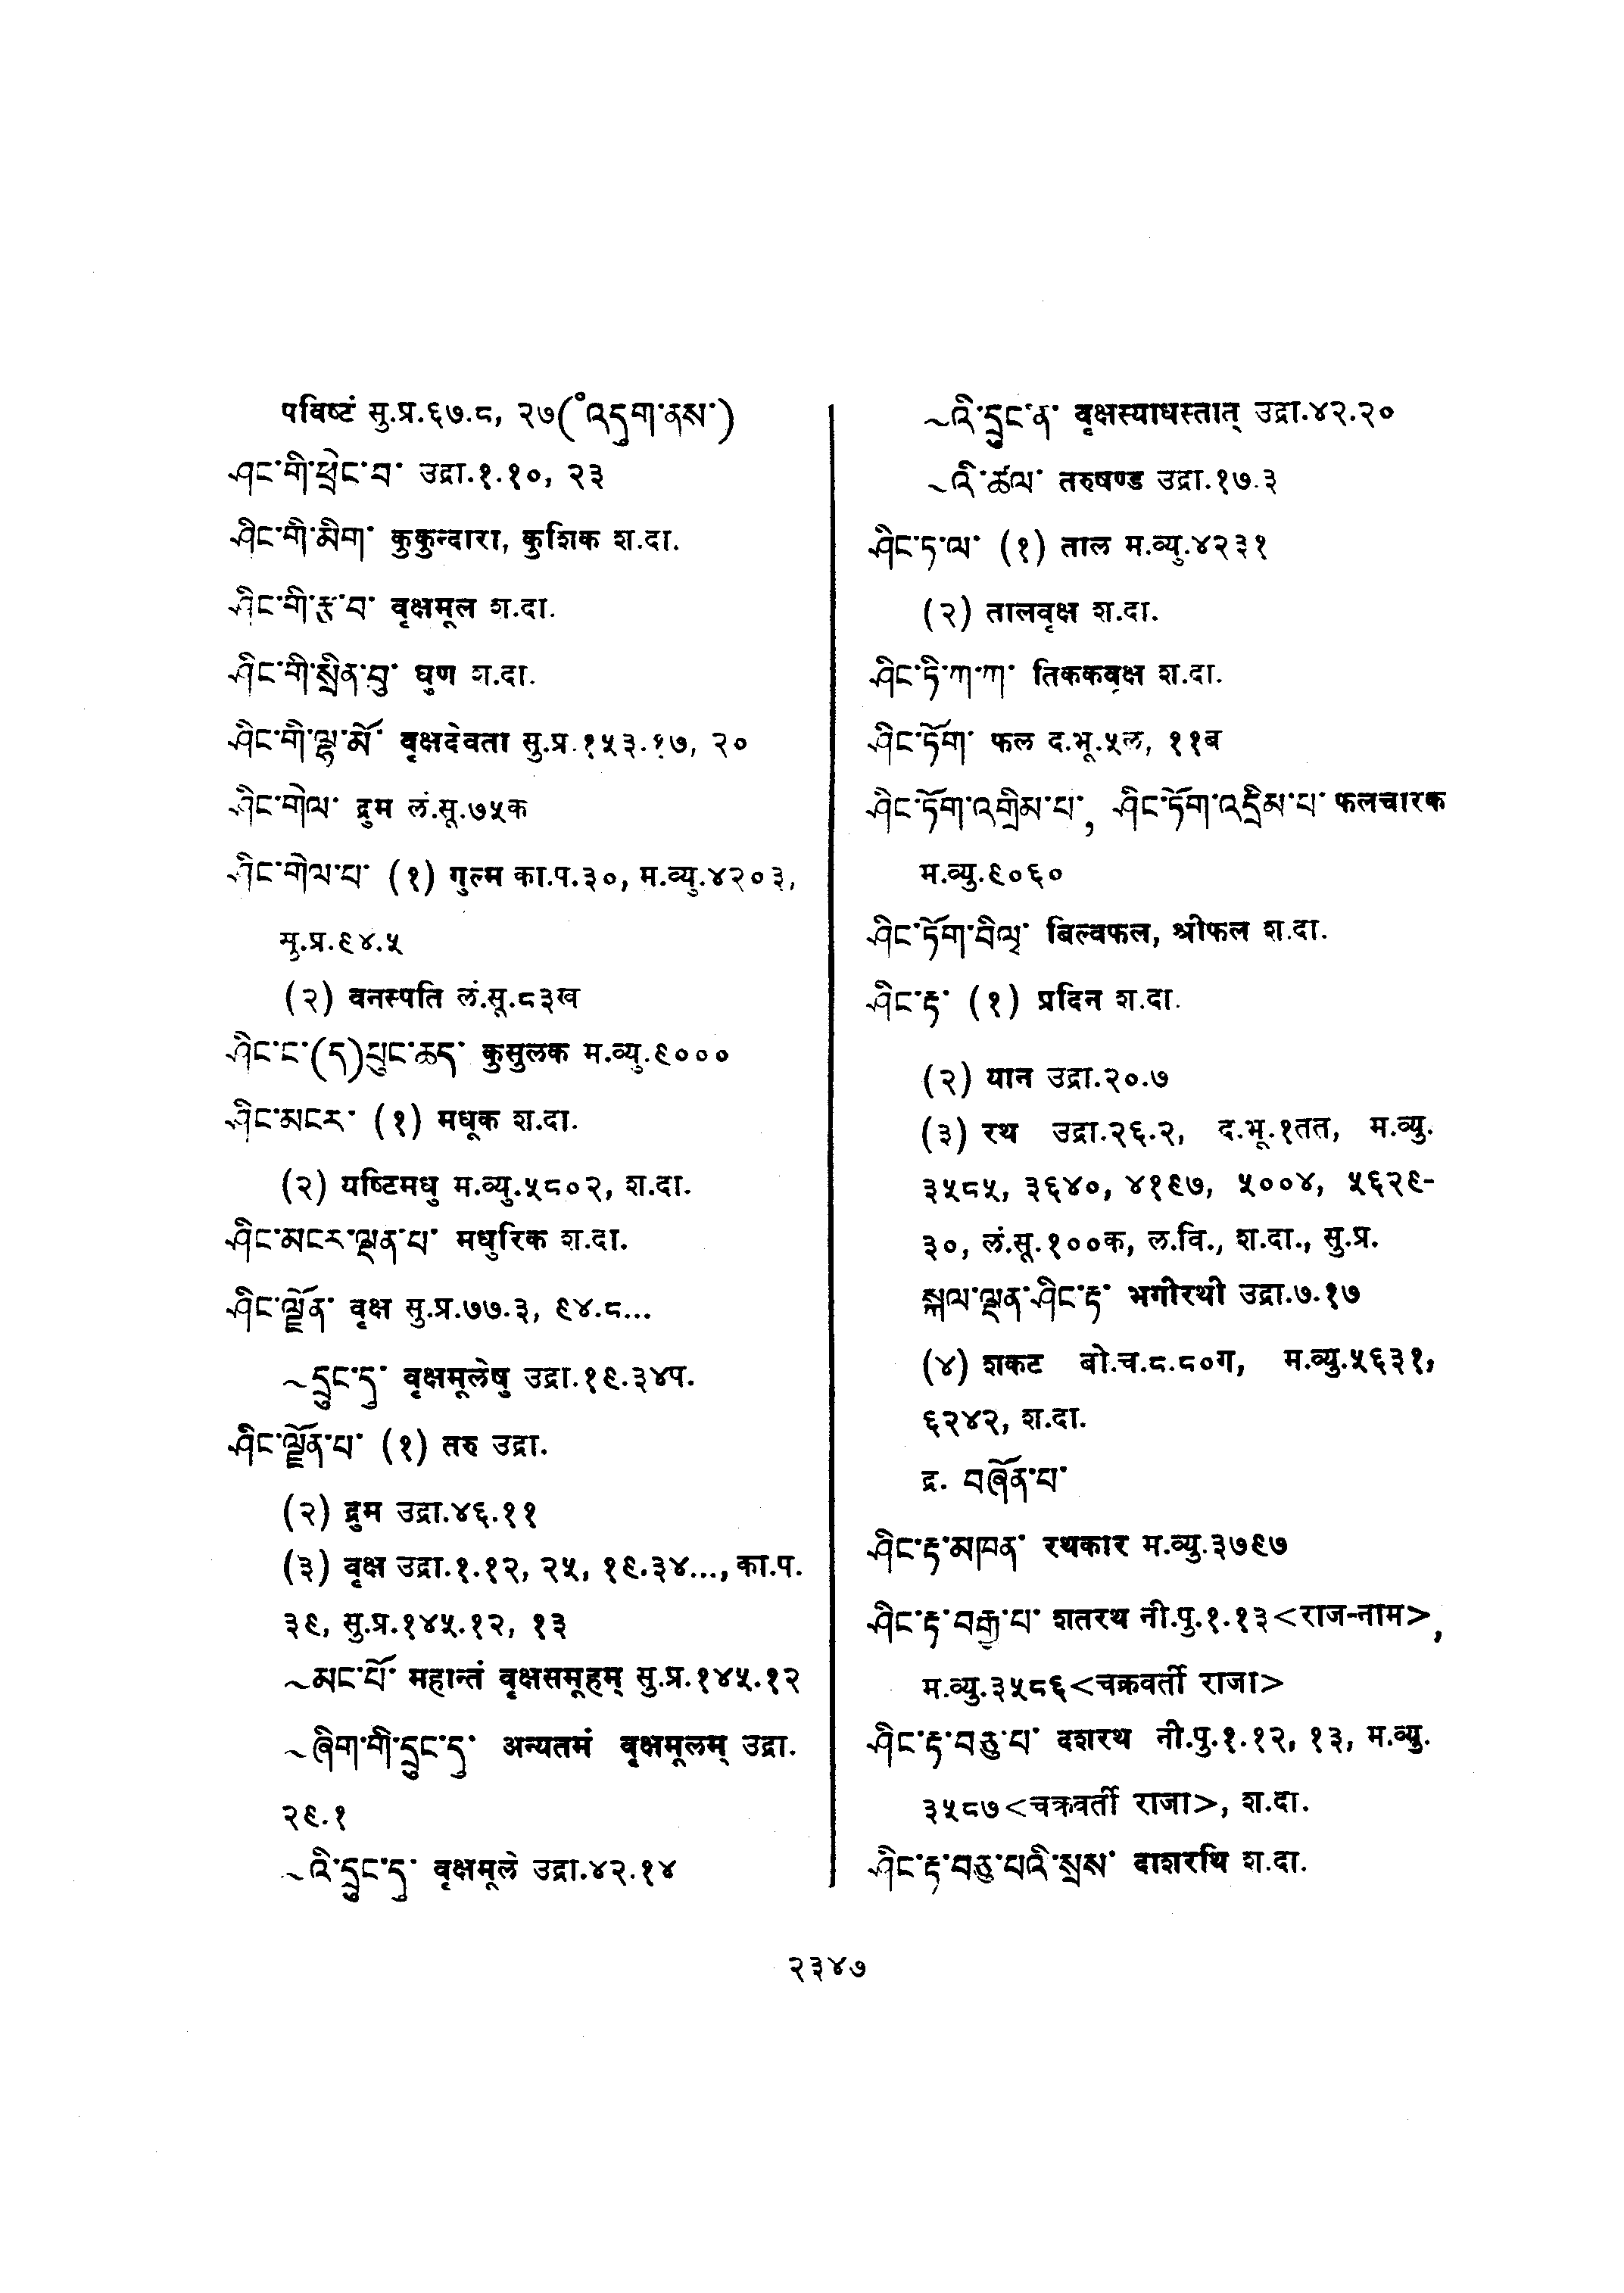 पविष्टं सु.प्र.६७.८, २७(॰འདུག་ནས་)
ཤང་གི་ཕྲེང་བ་ उद्रा.१.१०, २३
ཤིང་གི་མིག་ कुकुन्दारा, कुशिक श.दा.
ཤིང་གི་རྩ་བ་ वृक्षमूल श.दा.
ཤིང་གི་སྲིན་བུ་ घुण श.दा.
ཤིང་གི་ལྷ་མོ་ वृक्षदेवता सु.प्र.१५३.१७, २०
ཤིང་གེལ་ द्रुम लं.सू.७५क
ཤིང་གེལ་པ་ (१) गुल्म का.प.३०, म.व्यु.४२०३,
सु.प्र.९४.५
(२) वनस्पति लं.सू.८३ख
ཤིང་ང་(ད)ཕུང་ཆད་ कुसुलक म.व्यु.९०००
ཤིང་མངར་ (१) मधूक श.दा.
(२) यष्टिमधु म.व्यु.५८०२, श.दा.
ཤིང་མངར་ལྡན་པ་ मधुरिक श.दा.
ཤིང་ལྗོན་ वृक्ष सु.प्र.७७.३, ९४.८...
~དྲུང་དུ་ वृक्षमूलेषु उद्रा.१९.३४प.
ཤིང་ལྗོན་པ་ (१) तरु उद्रा.
(२) द्रुम उद्रा.४६.११
(३) वृक्ष उद्रा.१.१२, २५, १९.३४..., का.प.
३९, सु.प्र.१४५.१२, १३
~མང་པོ་ महान्तं वृक्षसमूहम् सु.प्र.१४५.१२
~ཞིག་གི་དྲུང་དུ་ अन्यतमं वृक्षमूलम् उद्रा.
२९.१
~འི་དྲུང་དུ་ वृक्षमूले उद्रा.४२.१४
~འི་དྲུང་ན་ वृक्षस्याधस्तात् उद्रा.४२.२०
~འི་ཚལ་ तरुषण्ड उद्रा.१७.३
ཤིང་ཏ་ལ་ (१) ताल म.व्यु.४२३१
(२) तालवृक्ष श.दा.
ཤིང་ཏི་ཀ་ཀ་ तिककवृक्ष श.दा.
ཤིང་ཏོག་ फल द.भू.५ल, ११ब
ཤིང་ཏོག་འགྲིམ་པ་, ཤིང་ཏོག་འདྲིམ་པ་ फलचारक
म.व्यु.९०६०
ཤིང་ཏོག་བིལྭ་ बिल्वफल, श्रीफल श.दा.
ཤིང་རྟ་ (१) प्रदिन श.दा.
(२) यान उद्रा.२०.७
(३) रथ उद्रा.२६.२, द.भू.१तत, म.व्यु.
३५८५, ३६४०, ४१९७, ५००४, ५६२९-
३०, लं.सू.१००क, ल.वि., श.दा., सु.प्र.
སྐལ་ལྡན་ཤིང་རྟ་ भगीरथी उद्रा.७.१७
(४) शकट बो.च.८.८०ग, म.व्यु.५६३१,
६२४२, श.दा.
द्र. བཞོན་པ་
ཤིང་རྟ་མཁན་ रथकार म.व्यु.३७९७
ཤིང་རྟ་བརྒྱ་པ་ शतरथ नी.पु.१.१३<राज-नाम>,
म.व्यु.३५८६<चक्रवर्ती राजा>
ཤིང་རྟ་བཅུ་པ་ दशरथ नी.पु.१.१२, १३, म.व्यु.
३५८७<चक्रवर्ती राजा>, श.दा.
ཤིང་རྟ་བཅུ་པའི་སྲས་ दाशरथि श.दा.
२३४७